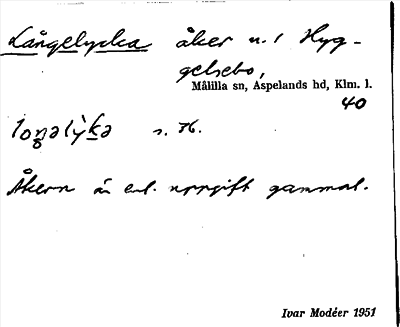 Långelycka åker n. 1 Hyg-
gelsebo,
Målilla sn, Aspelands hd, Klm. l.
40
s. 76.
Åkern är enl. uppgift gammal.
Ivar Modéer 1951